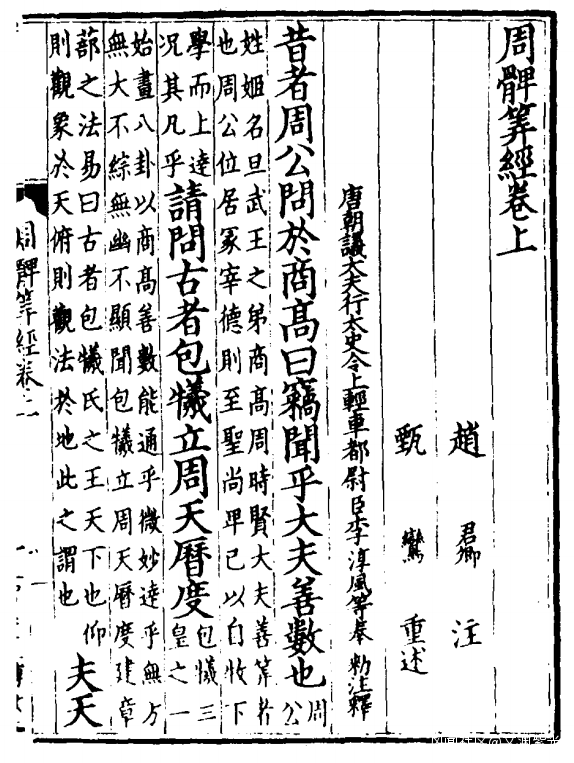 周髀筭經卷上
趙 君卿 注
甄 鸞 重述
唐朝議大夫行太史令上輕車都尉臣李淳風等奉 勑注釋
昔者周公問於商高曰竊聞乎大夫善數也周公
姓姬名旦武王之弟商高周時賢大夫善筭者
也周公位居冢宰德則至聖尚卑己以自牧下
學而上達況其凡乎請問古者包犧立周天曆度包犧三皇之一
始畫八卦以商高善數能通乎微妙達乎無方
無大不綜無幽不顯聞包犧立周天曆度建章
蔀之法易曰古者包犧氏之王天下也仰
則觀象於天俯則觀法於地此之謂也夫天
周髀筭經卷上